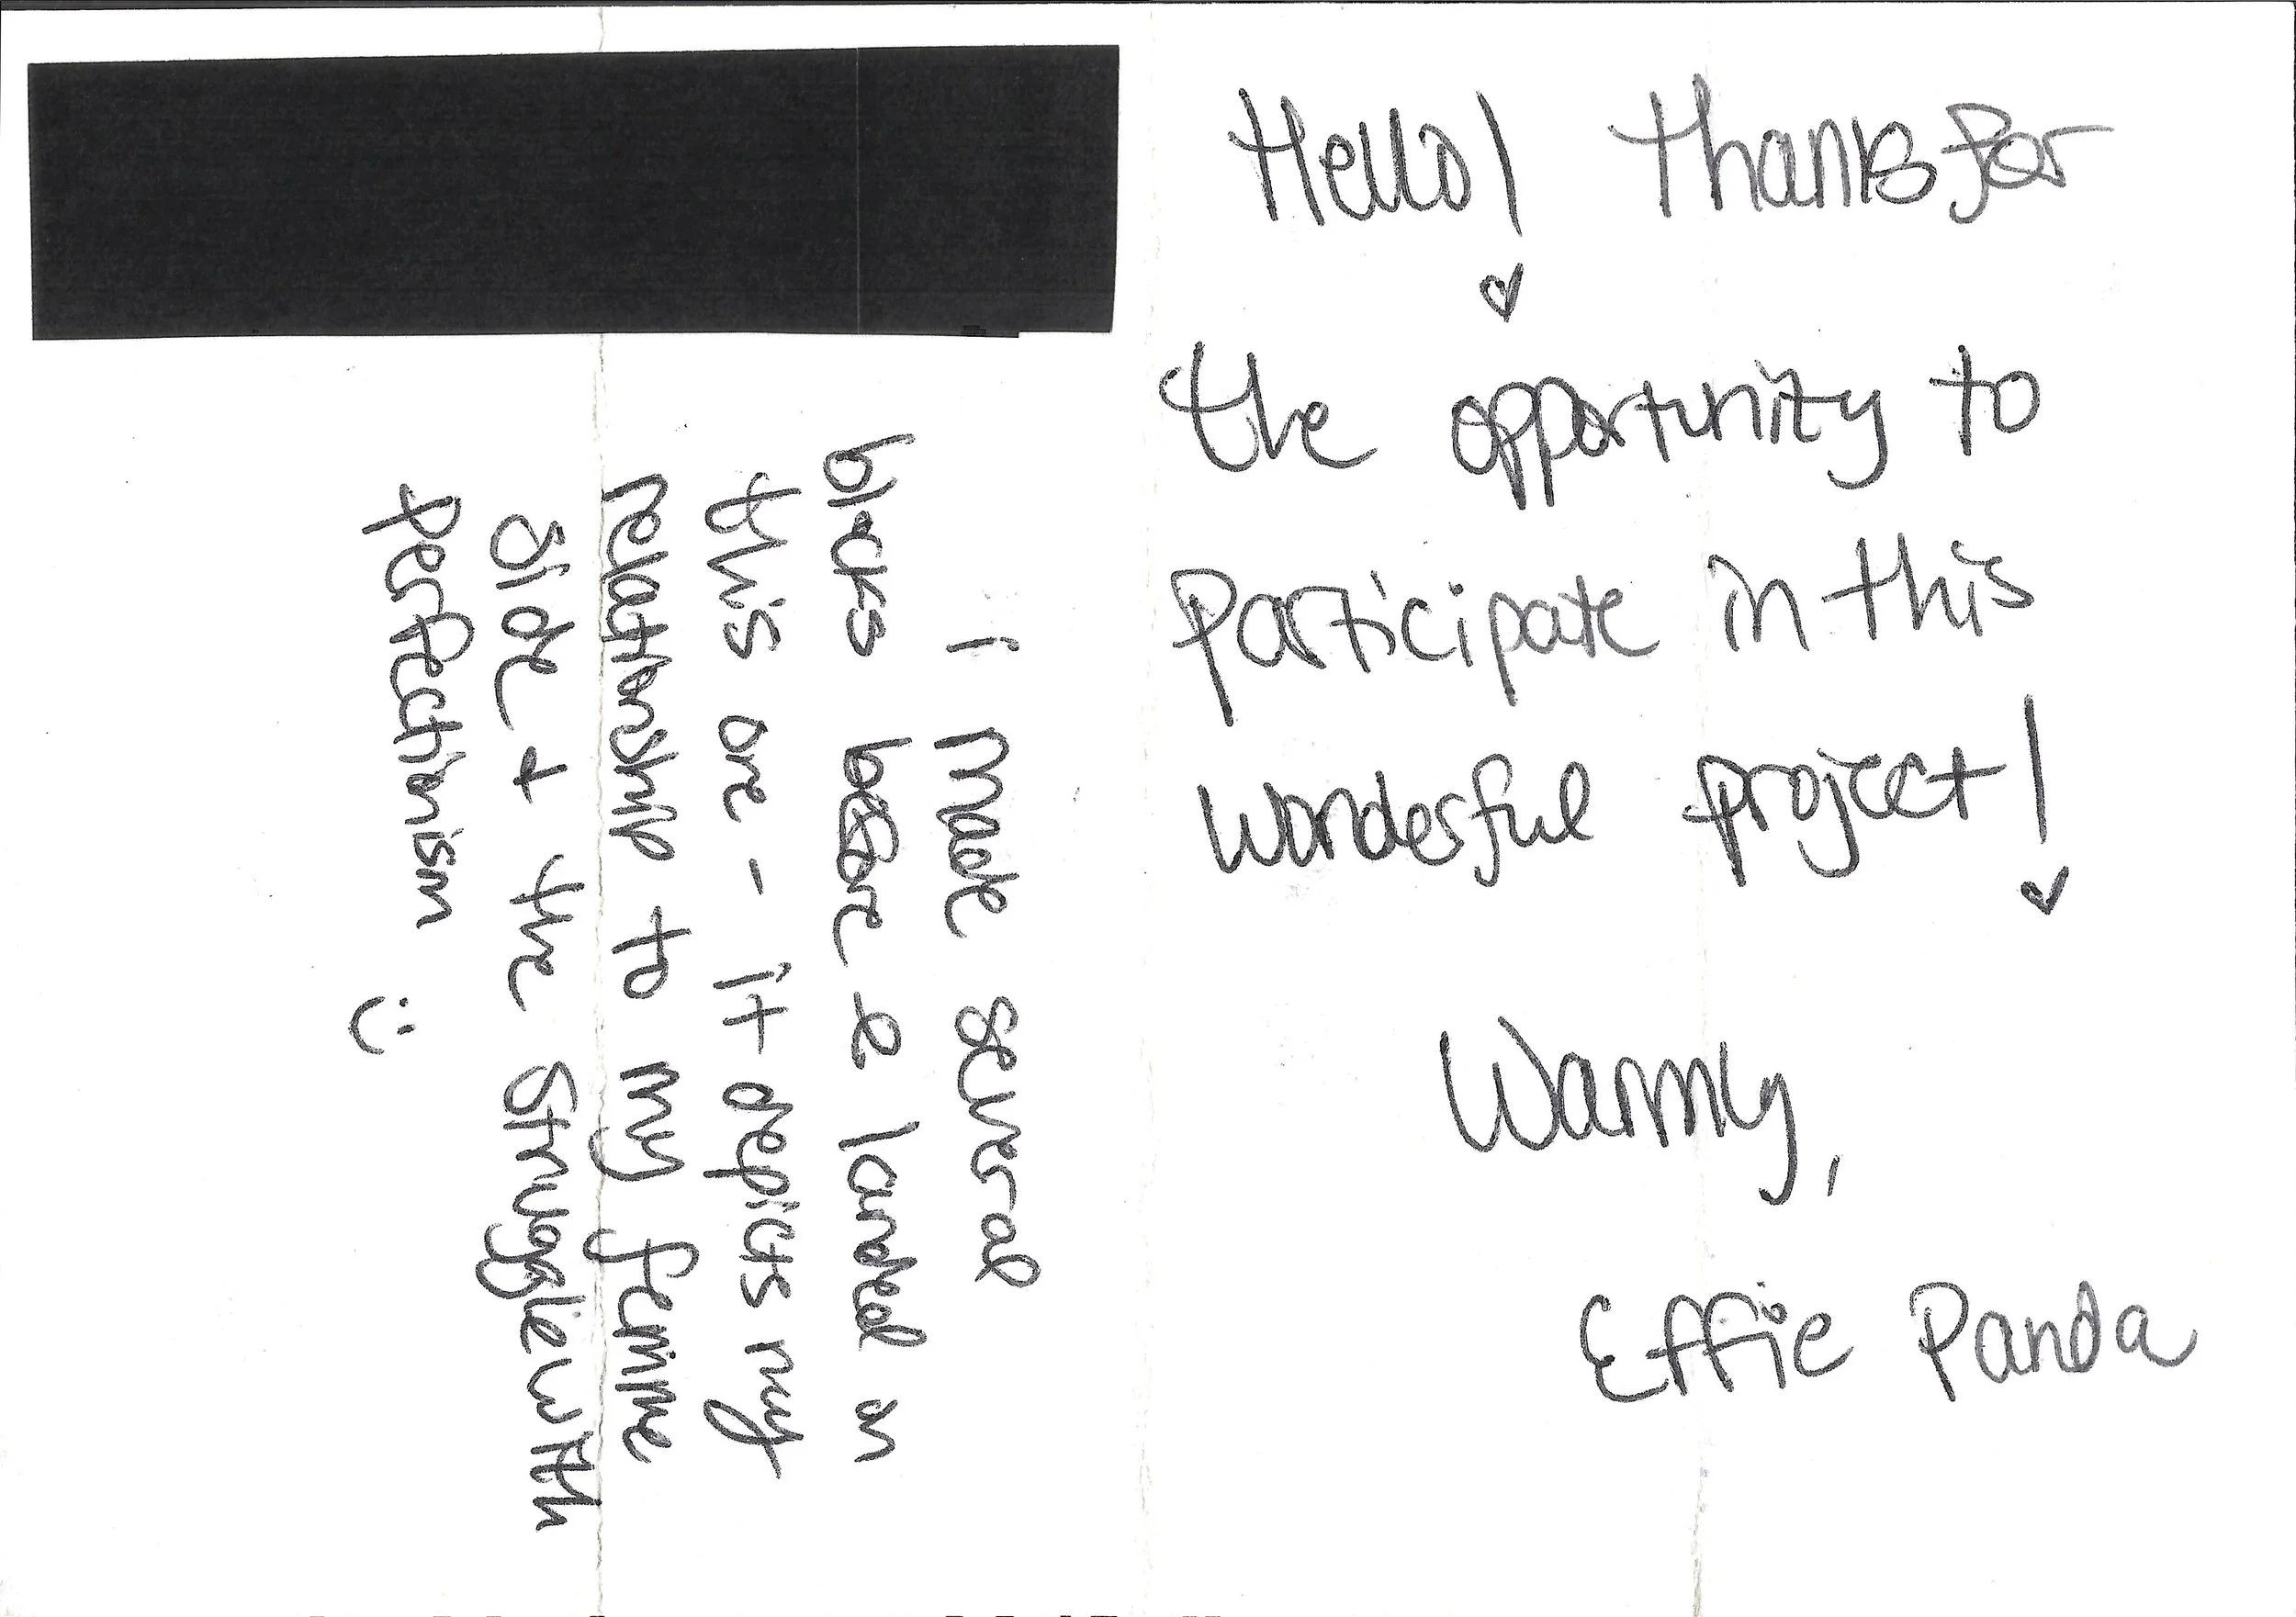 Hello! Thanks for
the opportunity to
participate in this
wonderful project!
Warmly,
Effie Panda
I made several
blocks before I landed on
this one - it depicts my
relationship to my femme
side + the struggle with
perfectionism :)